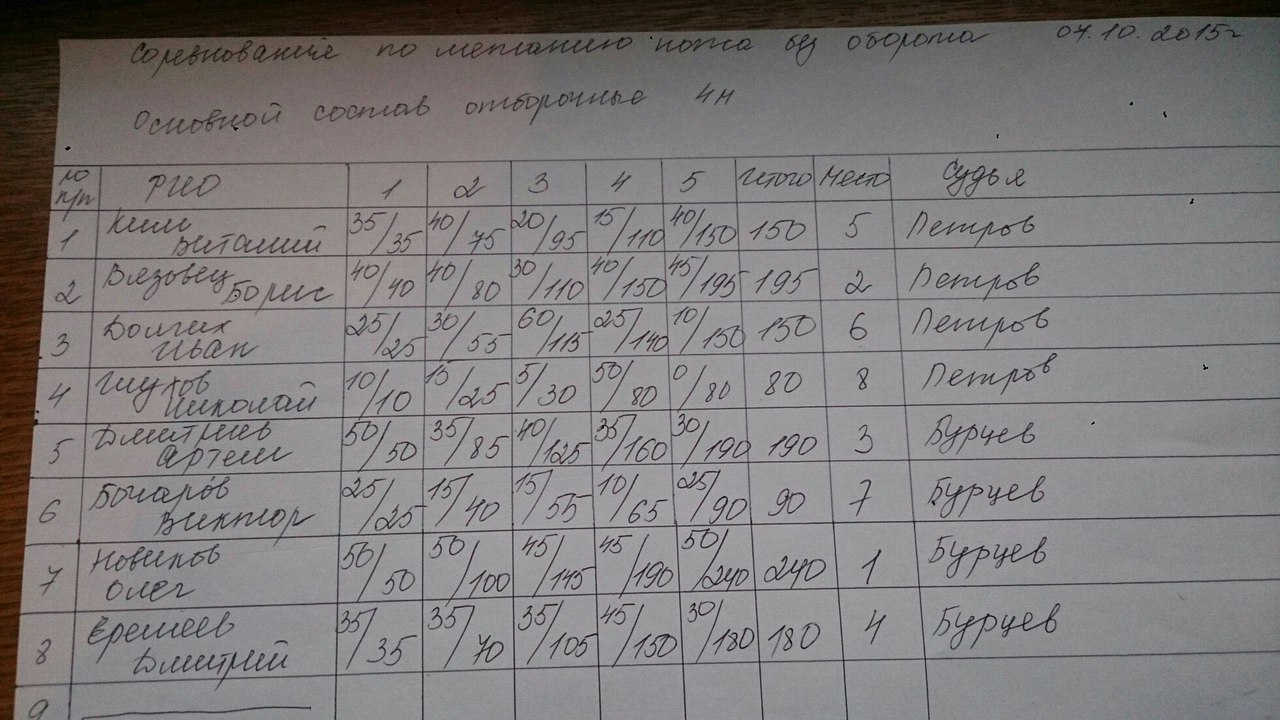 Соревнование по метанию ножа без оборота 07.10.2015г
Основной состав отборочные 4м
№ п/п ФИО 1 2 3 4 5 Итого Место Судья
1 Ким Виталий 35/35 40/75 20/95 15/110 40/150 150 5 Петров
2 Вязовец Борис 40/40 40/80 30/110 40/150 45/195 195 2 Петров
3 Долгих Иван 25/25 30/55 60/115 25/140 10/150 150 6 Петров
4 Шухов Николай 10/10 15/25 5/30 50/80 0/80 80 8 Петров
5 Дмитриев Артем 50/50 35/85 40/125 35/160 30/190 190 3 Бурцев
6 Бочаров Виктор 25/25 15/40 15/55 10/65 25/90 90 7 Бурцев
7 Новиков Олег 50/50 50/100 45/145 45/190 50/240 240 1 Бурцев
8 Еремеев Дмитрий 35/35 35/70 35/105 45/150 30/180 180 4 Бурцев
9